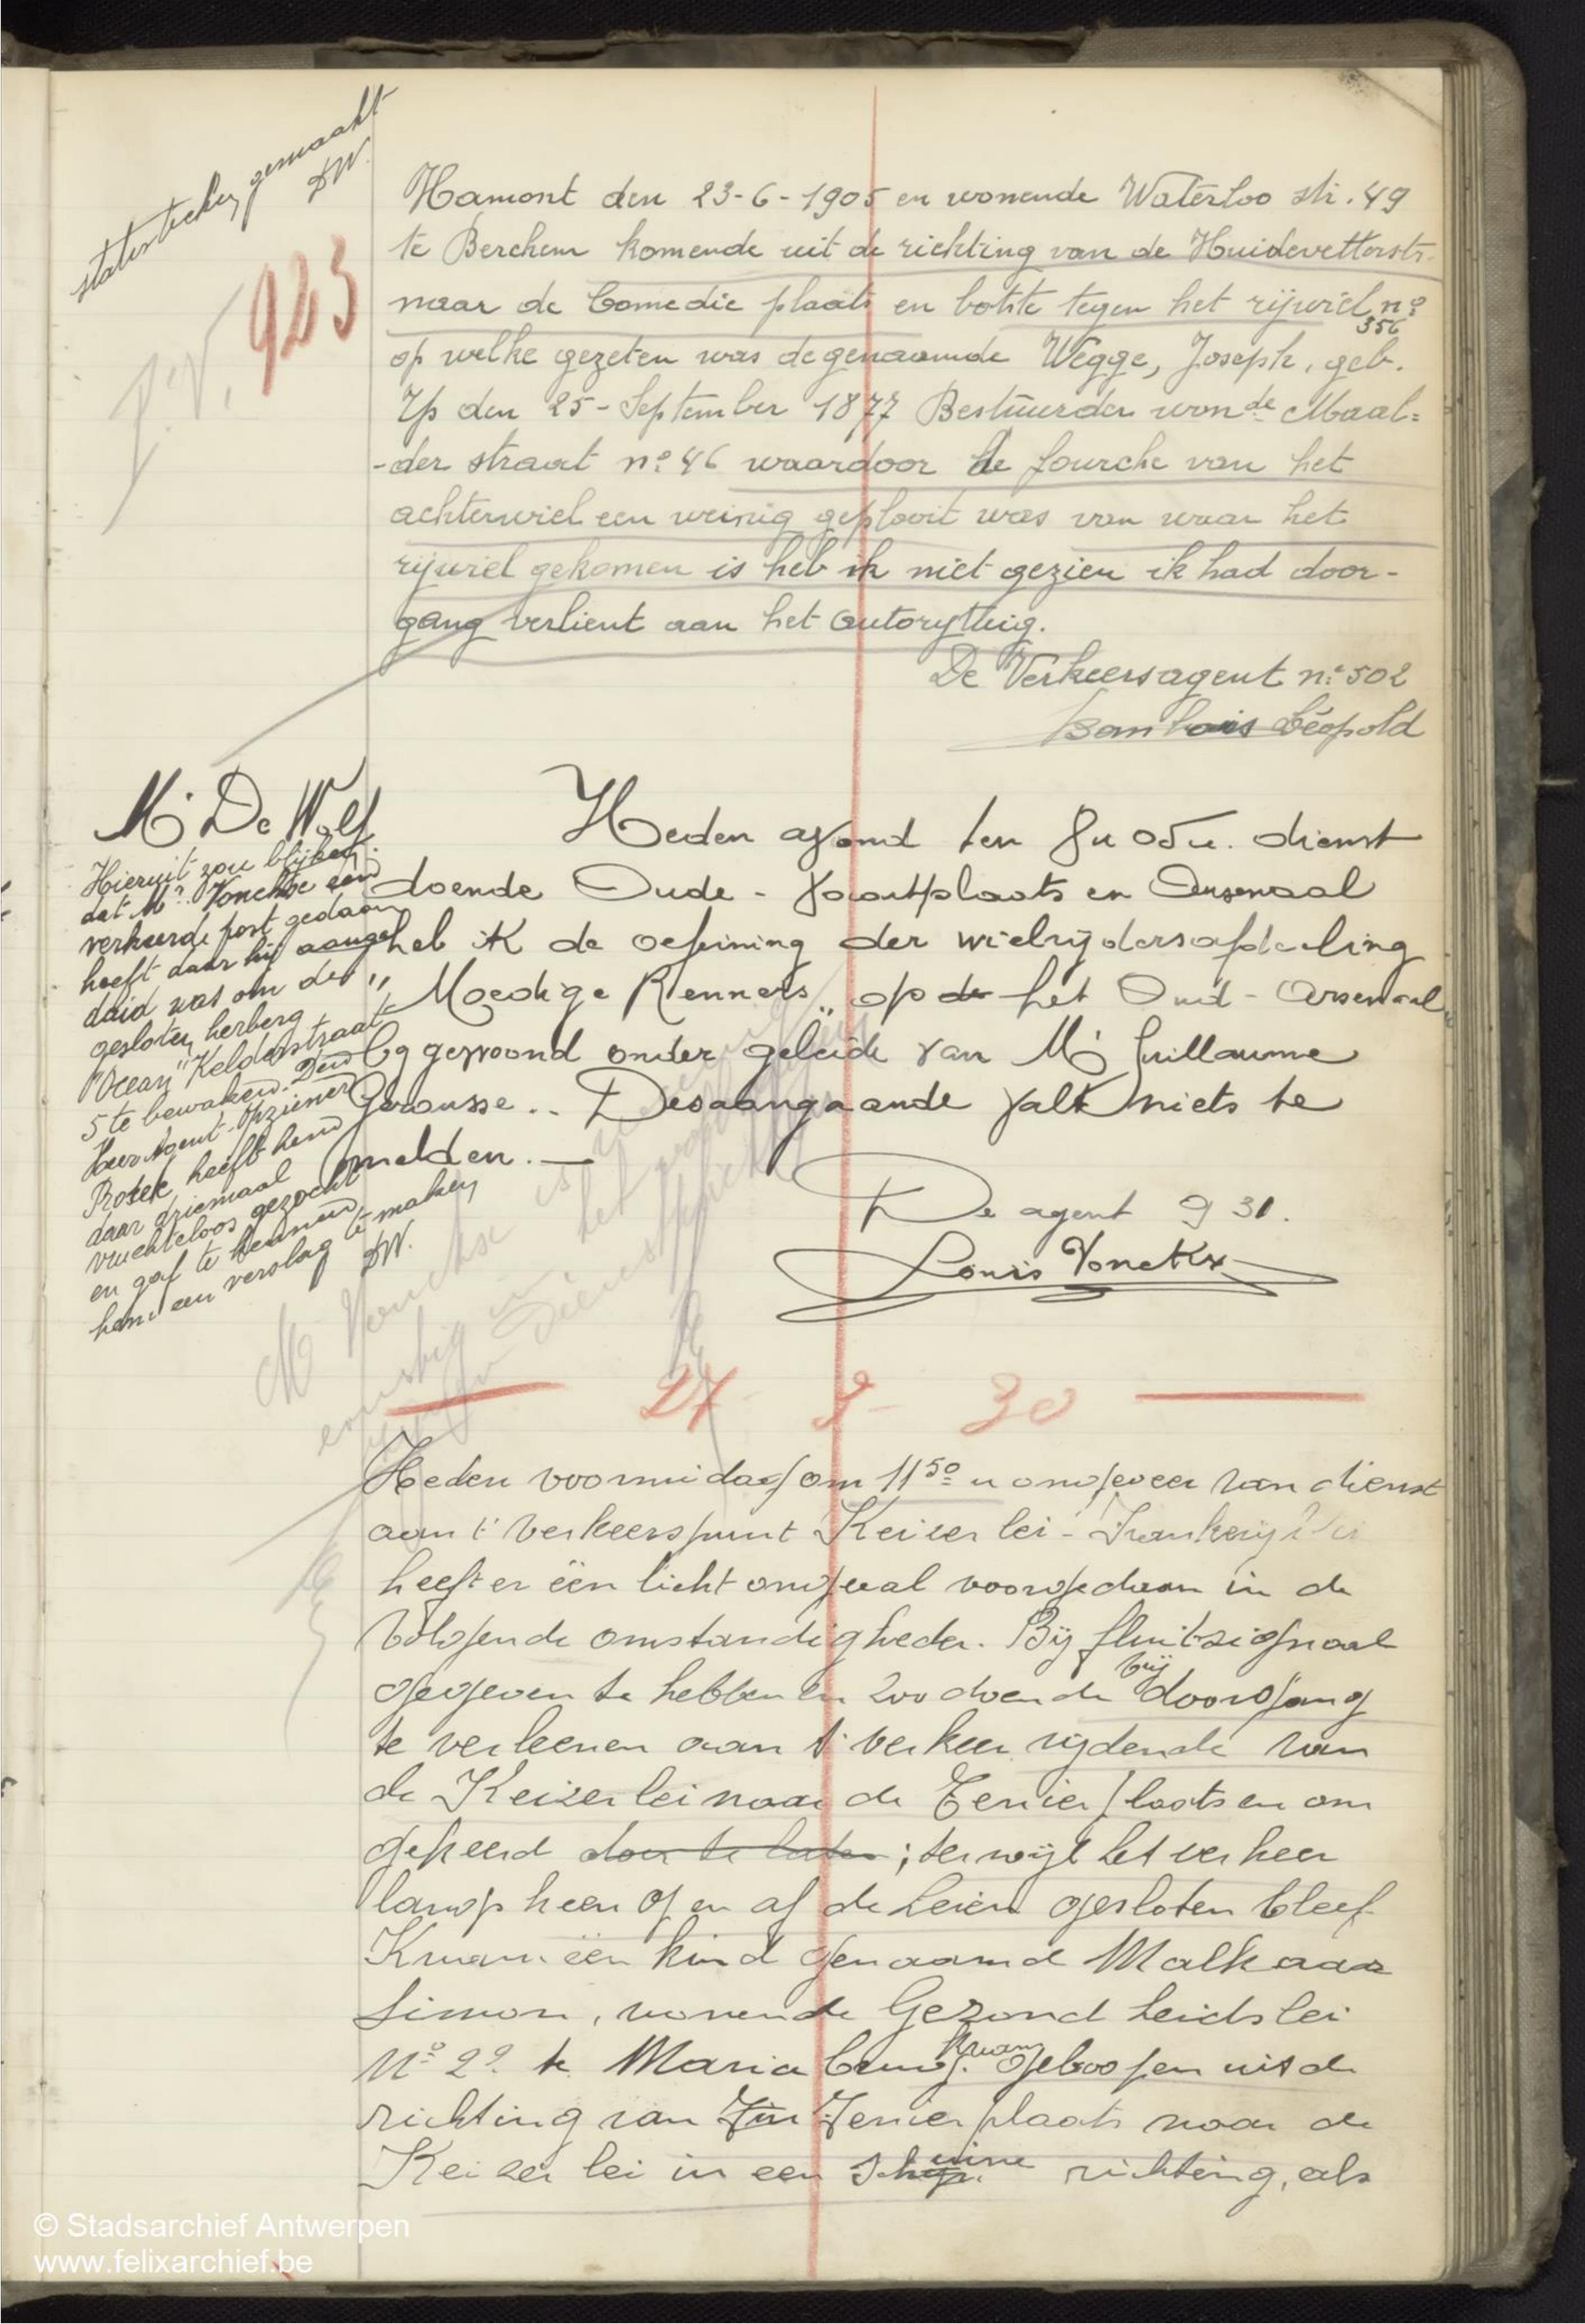 statistieken gemaakt
DW.
P.V. 923
Hamont den 23-6-1905 en wonende Waterloo str. 49
te Berchem komende uit de richting van de Huidevettorstr.
naar de Comedie plaats en botste tegen het rijwiel nº 356
op welke gezeten was de genaamde Wegge, Joseph, geb.
Yp den 25-September 1877 Bestuurder wonde Maal=
-der straat nº 46 waardoor de fourche van het
achterwiel een weinig geplooit was van waar het
rijwiel gekomen is heb ik niet gezien ik had door-
gang verlient aan het autorytuig.
De Verkeersagent nº 502
Léopold
Mr De Wolf
Hieruit zou blijken
dat Mr. Vonckx een
verkeerde post gedaan
heeft daar hij aangeh
daid was om de
gesloten herberg
"Ocean" Kelderstraat
5 te bewaken. Den
Heer Agent-Opziener
heeft hem
daar driemaal
vruchteloos gezocht
en gaf te kennen
hem een verslag te maken
DW.
Heden avond ten 8u 05u. dienst
doende Oude - Vaartplaats en Arsenaal
heb ik de oefening der wielrijdersafdeling
"Moedige Renners" op de het Oud-Arsenaal
bygewoond onder geleide van Mr Guillaume
Desaangaande valt niets te
melden. —
De agent 931.
Louis Vonckx
27 - 9 - 30
Heden voormidag om 11 50 u ongeveer van dienst
aan t' verkeerspunt Keizer lei - Frankrijk lei
heeft er ëen licht ongeval voorgedaan in de
volgende omstandigheden. Bij fluitsignaal
gegeven te hebben en zoo doende vrij doorgang
te verleenen aan t' verkeer rijdende van
de Keizer lei naar de Teniers plaats en om
gekeerd door te laten ; terwijl het verkeer
langs heen op en af de Leien gesloten bleef
Kwam ëen kind genaamd Malkaar
Simon, wonende Gezond heids lei
Nº 29. te Maria burg. kwam geloopen uit de
richting van Teniers plaats naar de
Keizer lei in een schuine richting, als
© Stadsarchief Antwerpen
www.felixarchief.be